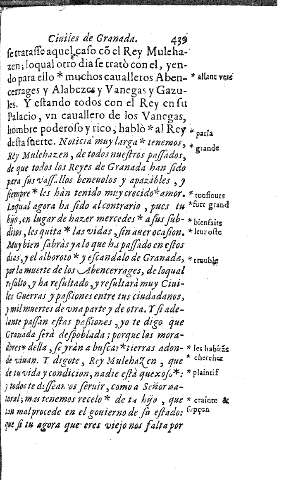 Ciuiles de Granada. 439
se tratasse aquel caso cõ el Rey Muleha-
zen; loqual otro dia se tratò con el, yen-
do para ello * muchos caualleros Aben- * allant vers
cerrages y Alabezes y Vanegas y Gazu-
les. Y estando todos con el Rey en su
Palacio, vn cauallero de los Vanegas,
hombre poderoso y rico, hablò * al Rey * parla
desta suerte. Noticia muy larga * tenemos, * grande
Rey Mulehazen, de todos nuestros passados,
de que todos los Reyes de Granada han sido
para sus vassallos beneuolos y apazibles, y
siempre * les han tenido muy crecido * amor. * tousiours * fort grand
Loqual agora ha sido al contrario, pues tu
hijo, en lugar de hazer mercedes * a sus sub- * bienfaits
ditos, les quita * las vidas, sin auer ocasion. * leur oste
Muy bien sabràs ya lo que ha passado en estos
dias, y el alboroto * y escandalo de Granada, * trouble
por la muerte de los Abencerrages, de loqual
resulto, y ha resultado, y resultarà muy Ciui-
les Guerras y passiones entre tus ciudadanos,
y mil muertes de vna parte y de otra. Y si ade-
lante passan estas passiones, yo te digo que
Granada serà despoblada; porque los mora-
dores della, se yràn a buscar * tierras adon- * les habitãs * chercher
de viuan. Y digote, Rey Mulehazen, que
de tu vida y condicion, nadie està quexoso * : * plaintif
y todos te dessean os seruir, como a Señor na-
toral; mas tenemos recelo * de tu hijo, que * crainte & supçon
con mal procede en el gouierno de su estado:
que si tu agora que eres viejo nos falta por